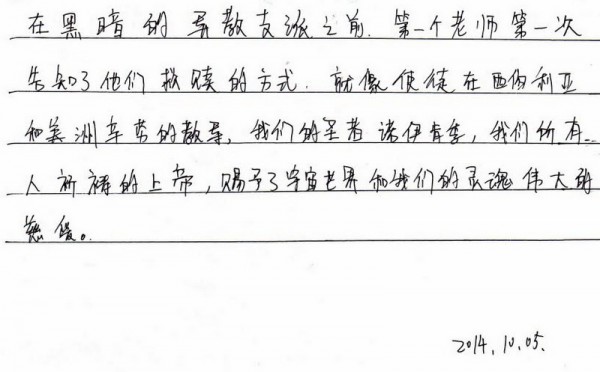 在黑暗的异教支派之前. 第一个老师第一次
告知了他们救赎的方式. 就像使徒在西伯利亚
和美洲辛劳的教导, 我们的圣者诺伊肯季, 我们所有
人祈祷的上帝, 赐予了宇宙世界和我们的灵魂伟大的
慈悲。
2014.10.05.